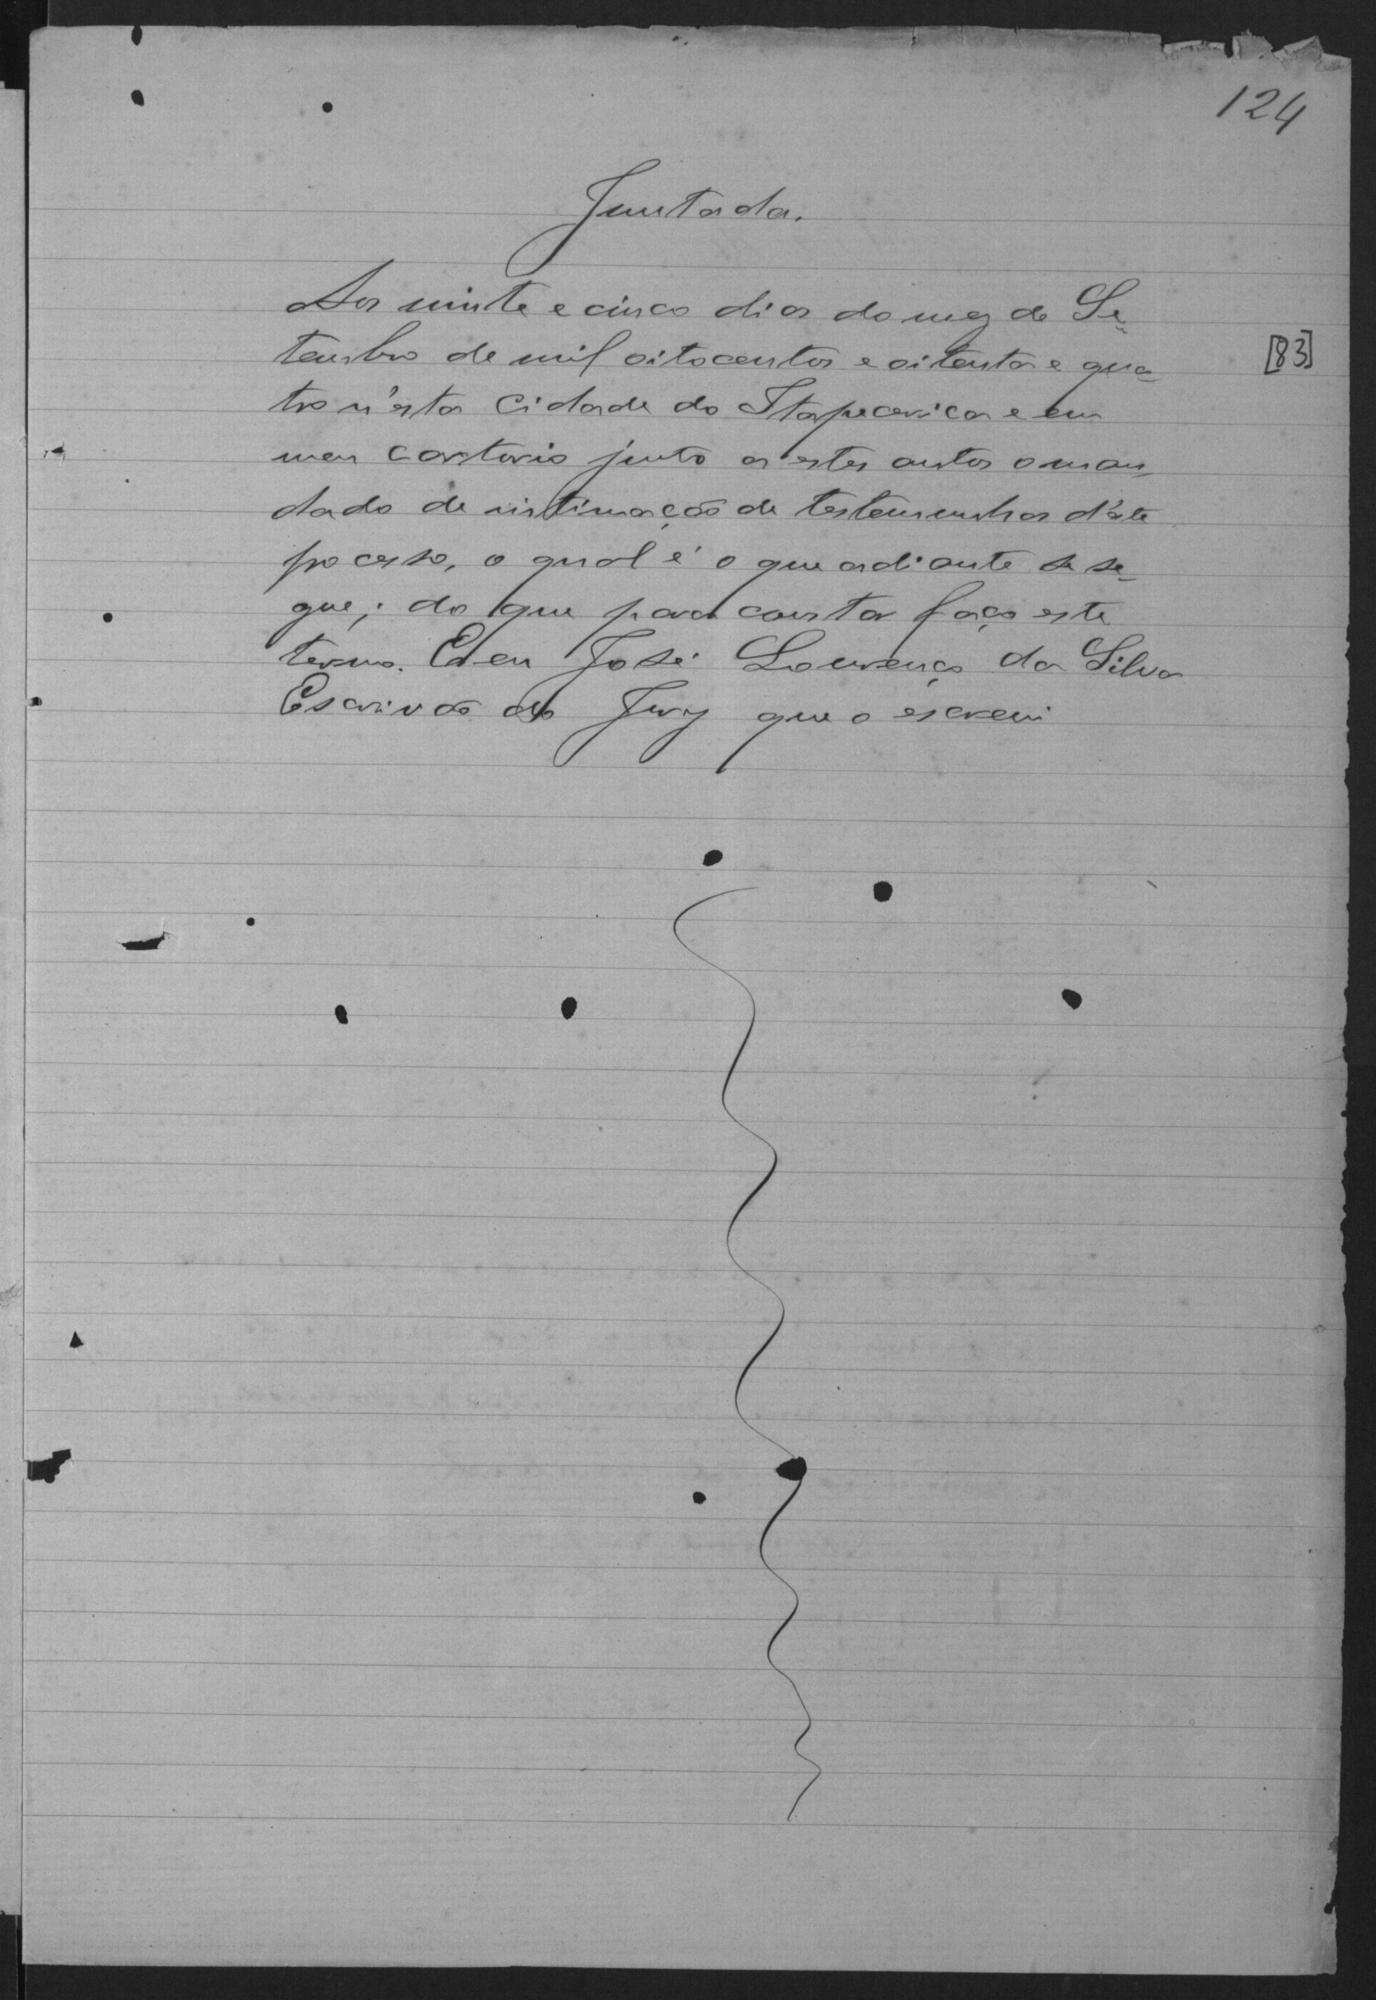 124
Juntada.
Aos vinte e cinco dias do mez de Se-
tembro de mil oitocentos e oitenta e qua-
[83]
tro n'esta Cidade do Itapecerica e em
meu Cartorio junto a estes autos o man-
dado de intimação de testemunhas d'este
processo, o qual é o que adiante se se-
gue; do que para constar faço este
termo. E eu José Lourenço da Silva
Escrivão do Jury que o escrevi